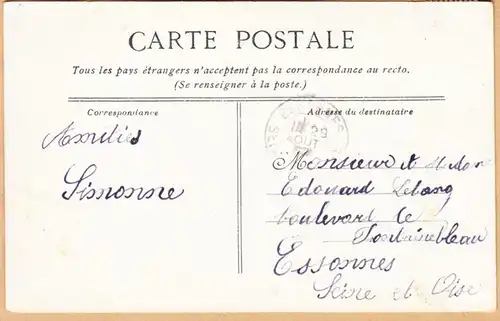 CARTE POSTALE
Tous les pays étrangers n'acceptent pas la correspondance au recto.
(Se renseigner à la poste.)
Correspondance
Adresse du destinataire
Amitiés
Simonne
Monsieur et Madame
Edouard
boulevard de
Fontainebleau
Essonnes
Seine et Oise